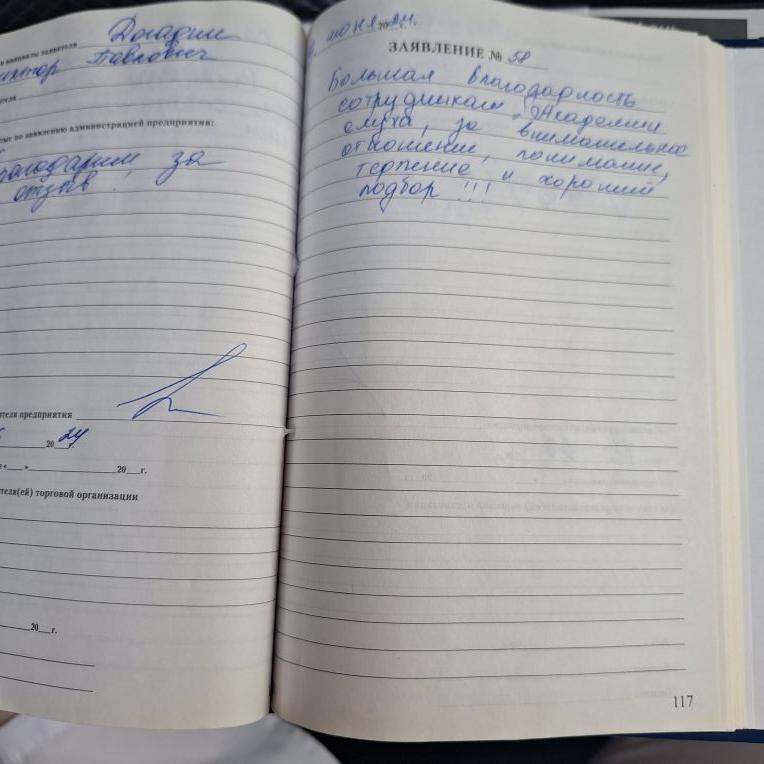 Догадин
инициалы заявителя
Виктор Павлович
ителя
ые по заявлению администрацией предприятия:
благодарим за
отзыв!
ителя предприятия
20 24 г.
« » 20 г.
ителя(ей) торговой организации
20 г.
июня 20 24.
ЗАЯВЛЕНИЕ № 58
Большая благодарность
сотрудникам "Академии
слуха, за внимательное
отношение, понимание,
терпение и хороший
подбор!!!
117